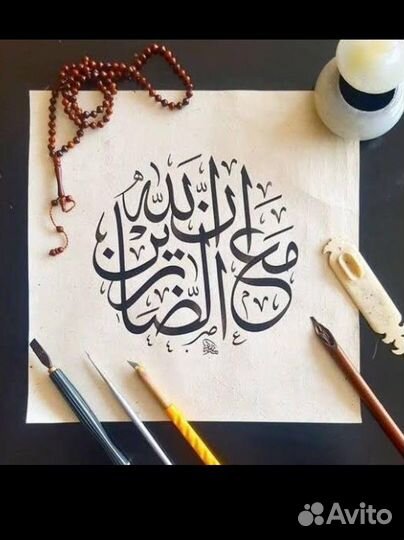 إن الله مع الصابرين
Avito